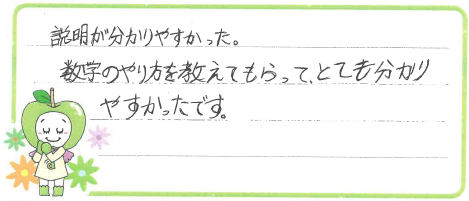 説明が分かりやすかった。
数学のやり方を教えてもらって、とても分かり
やすかったです。